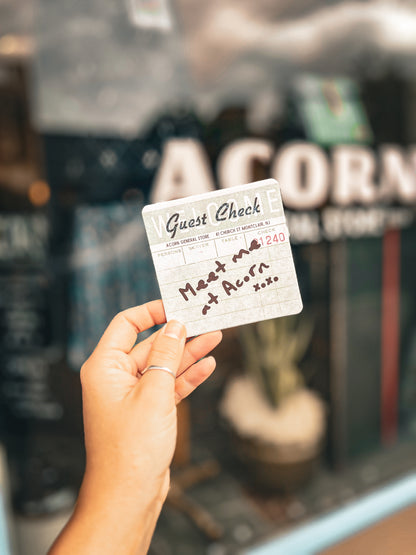 ACORN
GENERAL STORE
WELCOME
Guest Check
ACORN GENERAL STORE 61 CHURCH ST MONTCLAIR, NJ
PERSONS SERVER TARGET CHECK
1240
Meet me
at Acorn
xoxo